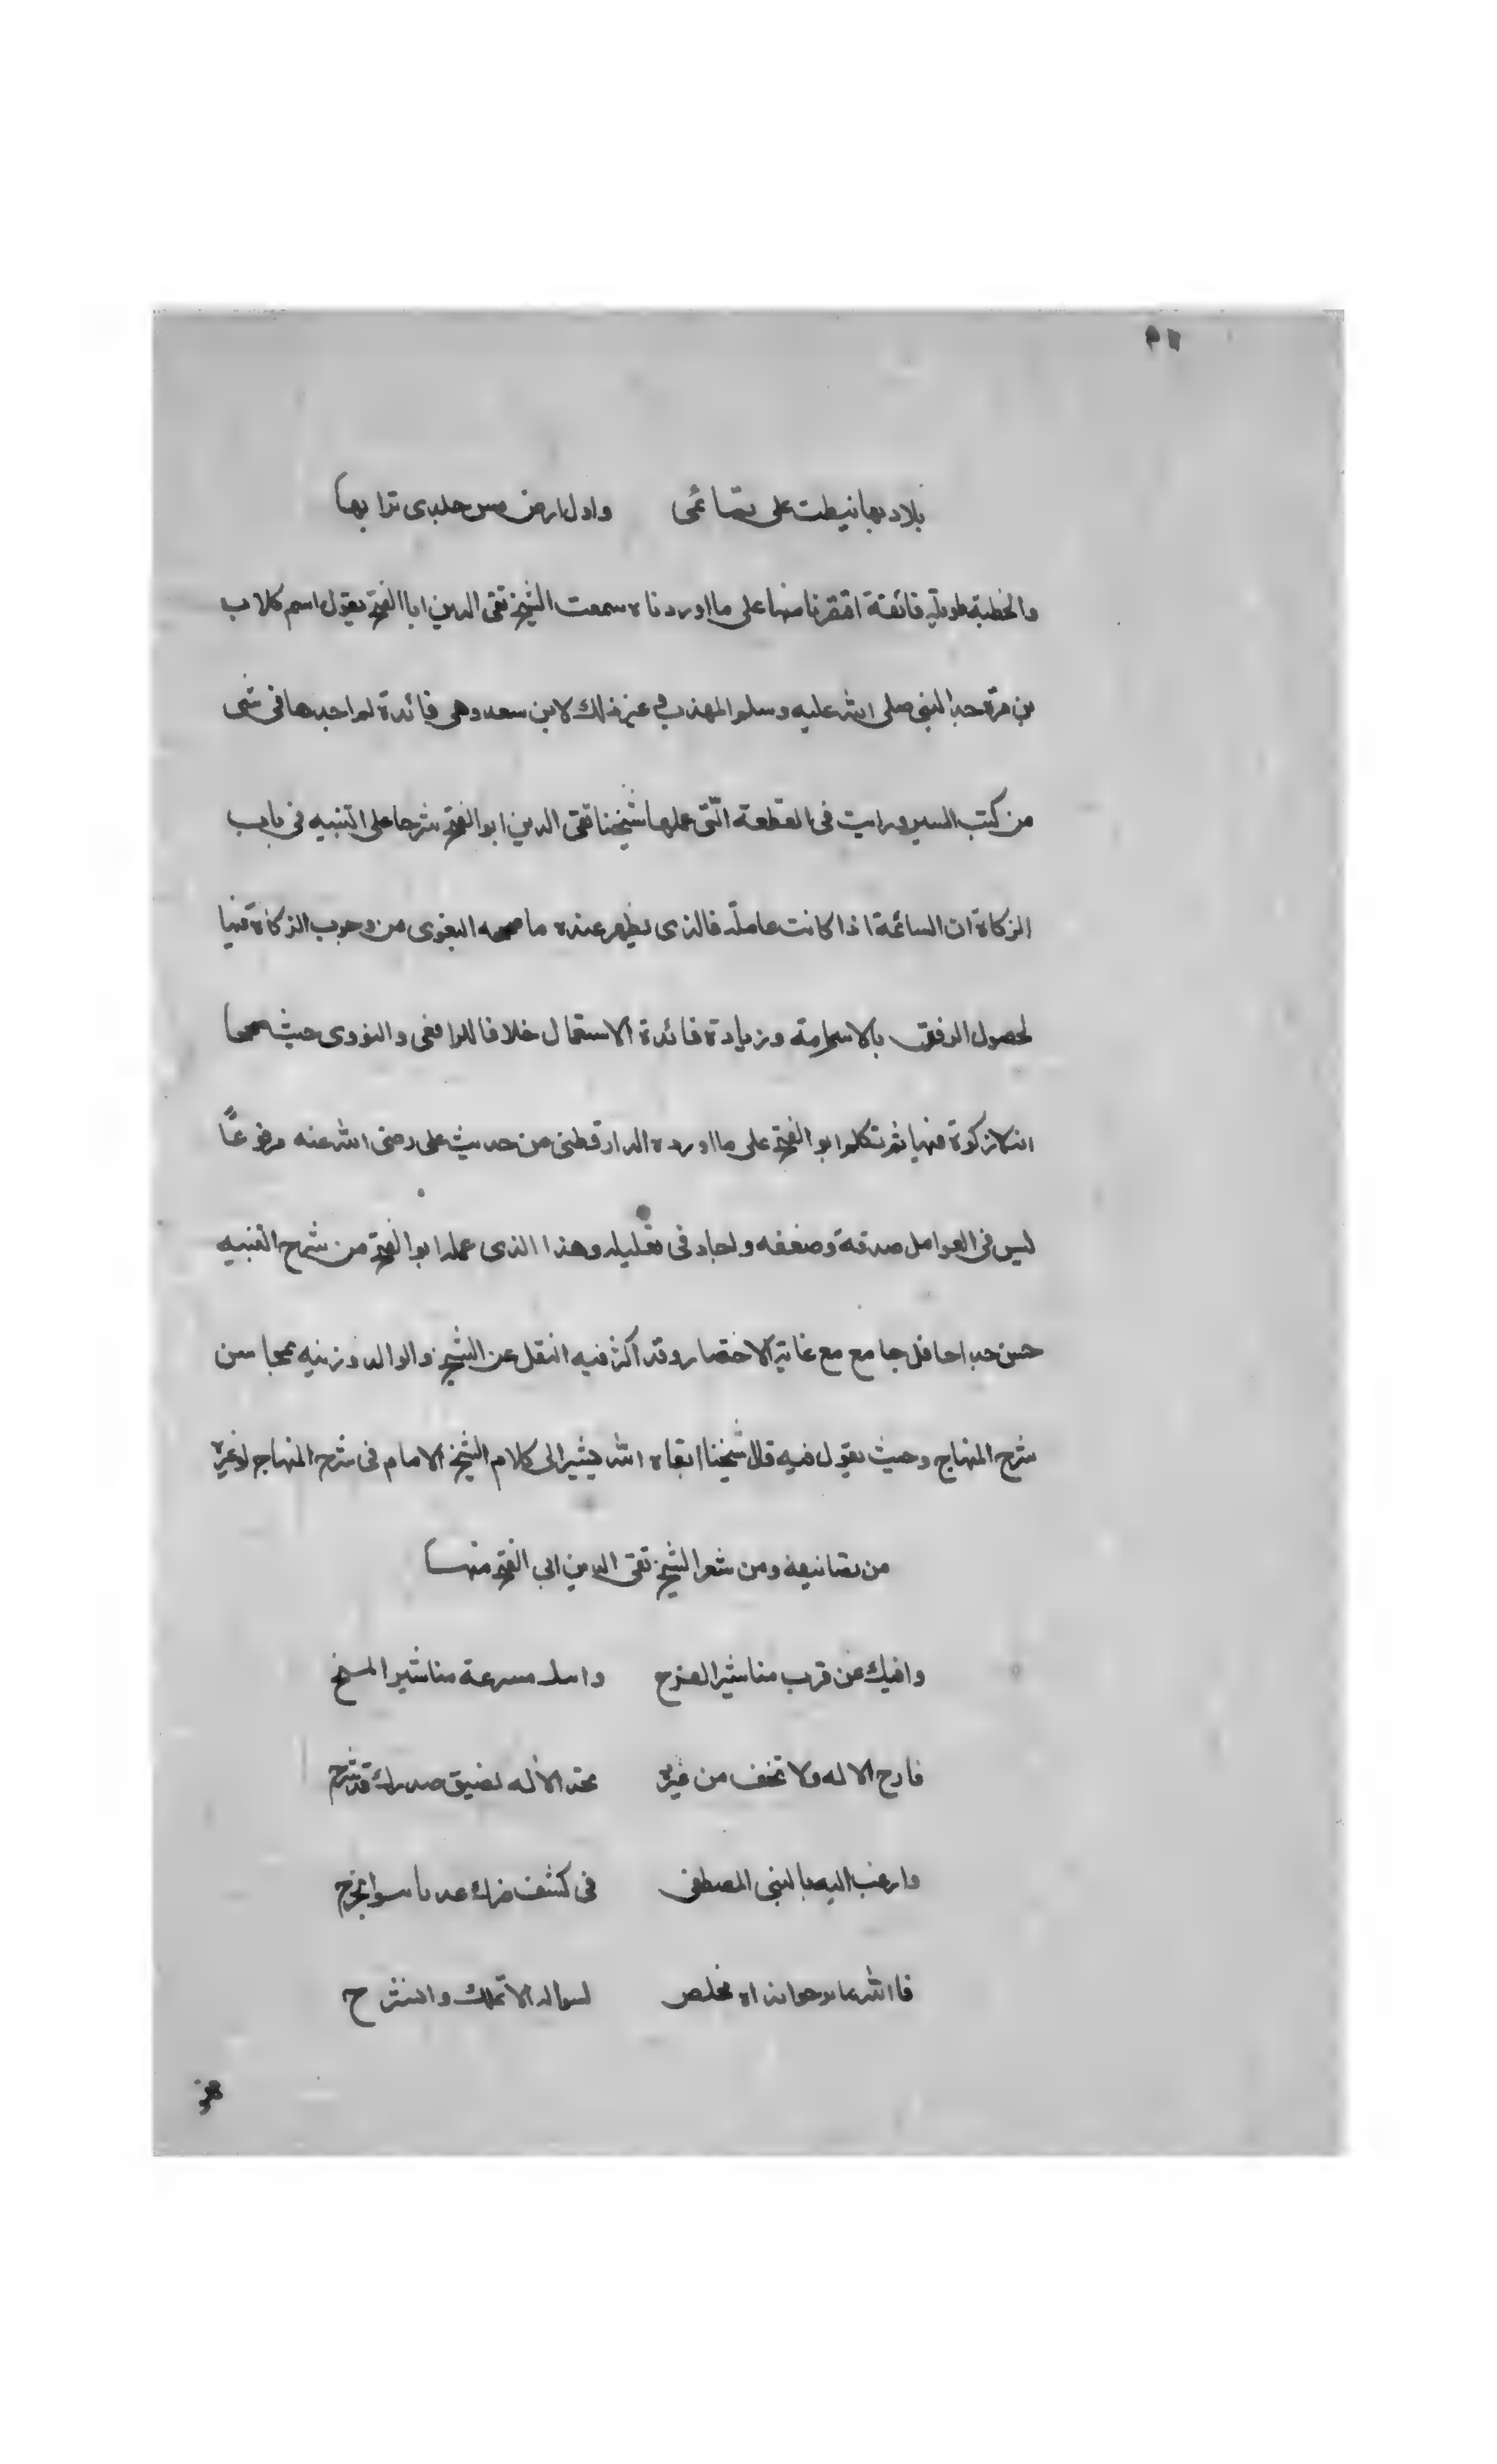 بلاد بها نيطت على تمائمى واول ارض مس جلدى ترابها
والخطبة طويلة فائقة اقتصرنا منها على ما اوردناه سمعت الشيخ تقى الدين ابا الفتح يقول اسم كلاب
بن مرة جد النبى صلى الله عليه وسلم المهذب فى عز ذلك لابن سعد وهى فائدة لم اجدها فى شى
من كتب السير ورايت فى القطعة التّى عملها شيخنا تقى الدين ابو الفتح شرحا على التنبيه فى باب
الزكاة ان السائمة اذا كانت عاملة فالذى يظهر عنده ما صححه البغوى من وجوب الزكاة فيها
لحصول الرفق بالاسامة وزيادة فائدة الاستعمال خلافا للرافعى والنووى حيث صححا
انه لا زكوة فيها ثم تكلم ابو الفتح على ما اورده الدارقطنى من حديث على رضى الله عنه مرفوعًا
ليس فى العوامل صدقة وضعفه واجاد فى تعليله وهذا الذى عمله ابو الفتح من شرح التنبيه
حسن جدا حافل جامع مع غاية الاختصار وقد اكثر فيه النقل عن الشيخ والوالد وزينه بمحاسن
شرح المنهاج وحيث يقول فيه قال شيخنا ابقاه الله يشير الى كلام الشيخ الامام فى شرح المنهاج او غيره
من تصانيفه ومن شعر الشيخ تقى الدين ابى الفتح منها
وافيك عن قرب مناشير الفرح مسرعة مناشير المنح
فارج الاله ولا تخف من غيره تجد الاله لضيق صدرك قد شرح
وارغب اليه بالنبى المصطفى فى كشف ضرك
فالله مخلص لسواله الا تملك وانشرح